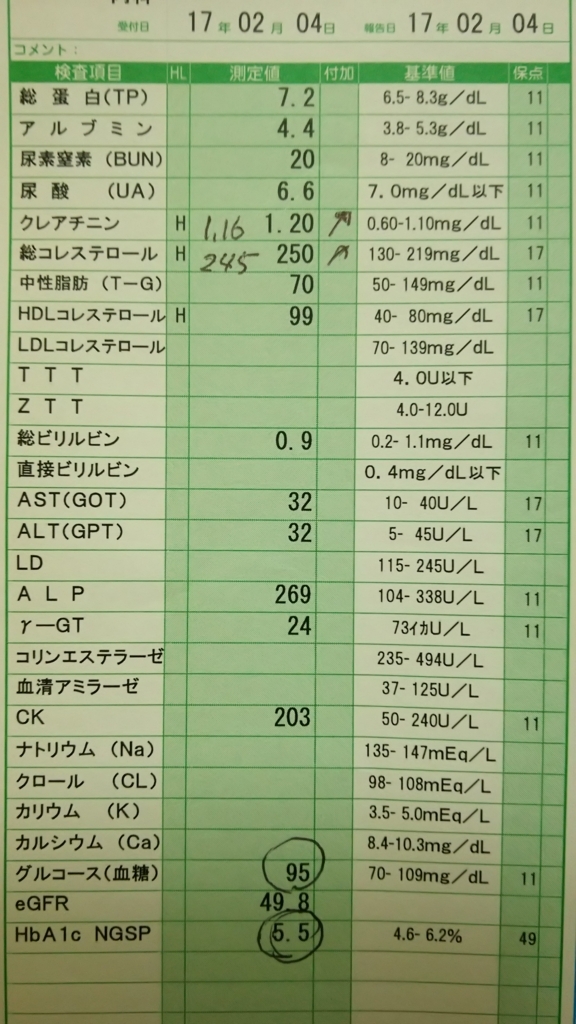 受付日 17年02月04日 報告日 17年02月04日
コメント：
検査項目 HL 測定値 付加 基準値 保点
総蛋白(TP) 7.2 6.5- 8.3g/dL 11
アルブミン 4.4 3.8- 5.3g/dL 11
尿素窒素 (BUN) 20 8- 20mg/dL 11
尿酸 (UA) 6.6 7.0mg/dL以下 11
クレアチニン H 1.16 1.20 ↗ 0.60-1.10mg/dL 11
総コレステロール H 245 250 ↗ 130- 219mg/dL 17
中性脂肪 (T-G) 70 50- 149mg/dL 11
HDLコレステロール H 99 40- 80mg/dL 17
LDLコレステロール 70- 139mg/dL
TTT 4.0U以下
ZTT 4.0-12.0U
総ビリルビン 0.9 0.2- 1.1mg/dL 11
直接ビリルビン 0.4mg/dL以下
AST(GOT) 32 10- 40U/L 17
ALT(GPT) 32 5- 45U/L 17
LD 115- 245U/L
ALP 269 104- 338U/L 11
γ-GT 24 73イカU/L 11
コリンエステラーゼ 235- 494U/L
血清アミラーゼ 37- 125U/L
CK 203 50- 240U/L 11
ナトリウム (Na) 135- 147mEq/L
クロール (CL) 98- 108mEq/L
カリウム (K) 3.5- 5.0mEq/L
カルシウム (Ca) 8.4-10.3mg/dL
グルコース(血糖) 95 70- 109mg/dL 11
eGFR 49.8
HbA1c NGSP 5.5 4.6- 6.2% 49